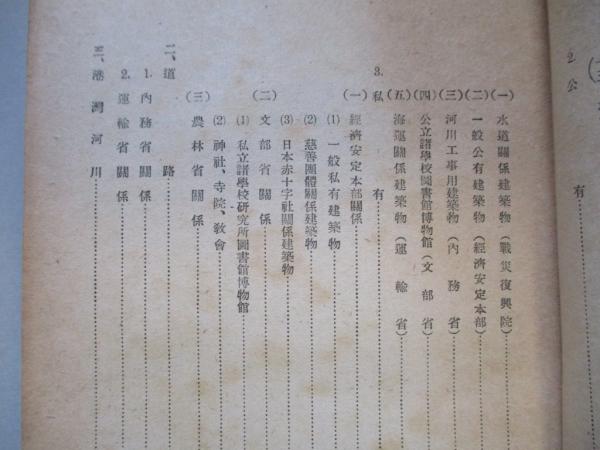 2. 公
有
(一) 水道關係建築物(戰災復興院)
(二) 一般公有建築物(經濟安定本部)
(三) 河川工事用建築物(內務省)
(四) 公立諸學校圖書館博物館(文部省)
(五) 海運關係建築物(運輸省)
3. 私有
(一) 經濟安定本部關係
(1) 一般私有建築物
(2) 慈善團體關係建築物
(3) 日本赤十字社關係建築物
(二) 文部省關係
(1) 私立諸學校硏究所圖書館博物館
(2) 神社、寺院、敎會
(三) 農林省關係
二、道路
1. 內務省關係
2. 運輸省關係
三、港灣河川